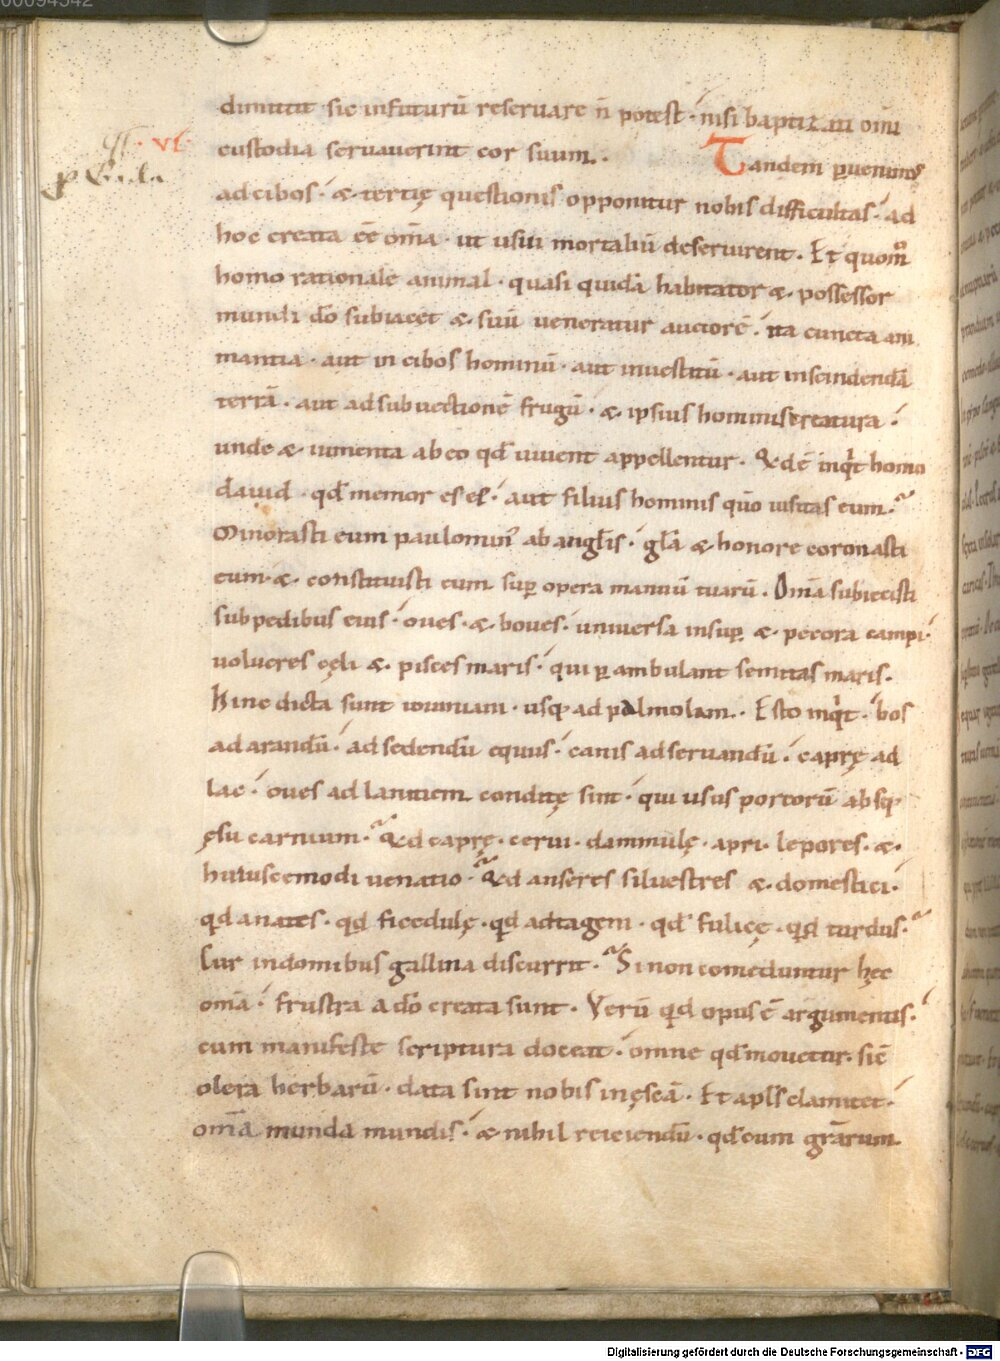 00094542
dimittit · sic infuturū reseruare n̄ potest · nisi baptizati om̄i
.VI. custodia seruauerint cor suum. Tandem ꝑuenimus
adcibos · & tertię questionis opponitur nobis difficultas · ad
hoc creata eē om̄a · ut usui mortaliū deseruirent. Et quom̊
homo rationale animal · quasi quidā habitator & possessor
mundi dō subiacet & suū ueneratur auctorē · ita cuncta ani
mantia · aut in cibos hominū · aut inuestitū · aut inscindendā
terrā · aut adsubuectionē frugū · & ipsius hominis creatura ·
unde & iumenta abeo qd̄ iuuent appellentur. Qd ē inqͥt homo
dauid · qd̄ memor es eſ · aut filius hominis qūo uisitas eum.
Minorasti eum paulominꝰ abangłis · głā & honore coronasti
eum · & constituisti eum suꝑ opera manuū tuarū. Om̄a subiecisti
subpedibus eius · oues · & boues · uniuersa insuꝑ & pecora campi ·
uolucres cęli & pisces maris · qui ꝑambulant semitas maris.
Hinc dicta sunt iouiniani · usq; ad palmolam. Esto inqͥt · bos
adarandū · adsedendū equus · canis adseruandū · caprę ad
lac · oues adlanitiem conditę sint · qui usus portorū absq;
ęsu carnium. Qd caprę · cerui · dammulę · apri · lepores · &
huiuscemodi uenatio · Qd anseres siluestres & domestici ·
qd anates · qd ficedulę · qd adtagem · qd̄ fulicę · qd turdus ·
Cur indomibus gallina discurrit. Si non comeduntur hęc
om̄a · frustra a dō creata sunt. Verū qd opus ē argumentis ·
cum manifeste scriptura doceat · omne qd̄ mouetur · sic̄
olera herbarū · data sint nobis inęscā. Et apłs clamitet ·
om̄a munda mundis · & nihil reiciendū · qd̄ cum gr̄arum
Digitalisierung gefördert durch die Deutsche Forschungsgemeinschaft - DFG